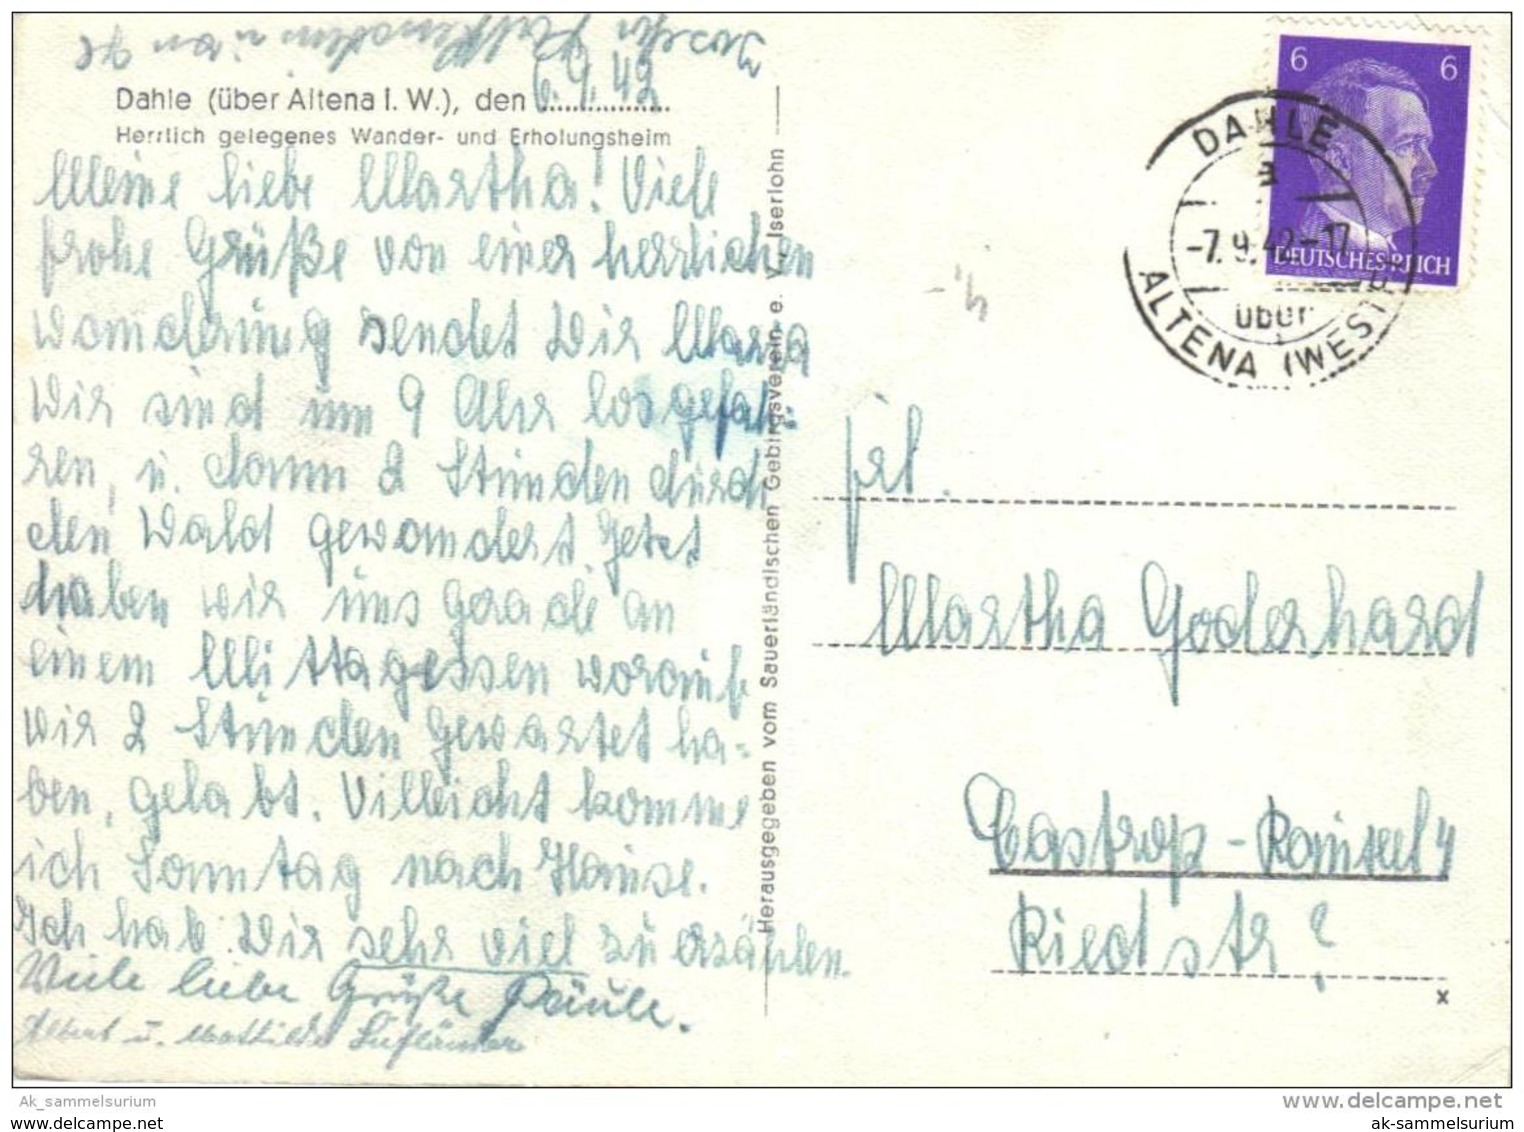 Dahle (über Altena i. W.), den 6.9.42
Herrlich gelegenes Wander- und Erholungsheim
Meine liebe Martha! Viele
frohe Grüße von einer herrlichen
Wanderung sendet Dir Maria
Wir sind um 9 Uhr losgefah-
ren, u. dann 2 Stunden durch
den Wald gewandert. Jetzt
haben wir uns gerade an
einem Mittagessen worauf
wir 2 Stunden gewartet ha-
ben, gelabt. Villeicht komme
ich Sonntag nach Hause.
Ich hab Dir sehr viel zu erzählen.
Viele liebe Grüße Paula.
Albert u. Mathilde
Herausgegeben vom Sauerländischen Gebirgsverein e. V., Iserlohn
6 6
DEUTSCHES REICH
DAHLE
a
-7.9.42-17
über
ALTENA (WESTF
Frl.
Martha Goderhardt
Castrop-Rauxel 4
Riedstr ?
x
Ak_sammelsurium
www.delcampe.net
ak-sammelsurium
ak-sammelsurium